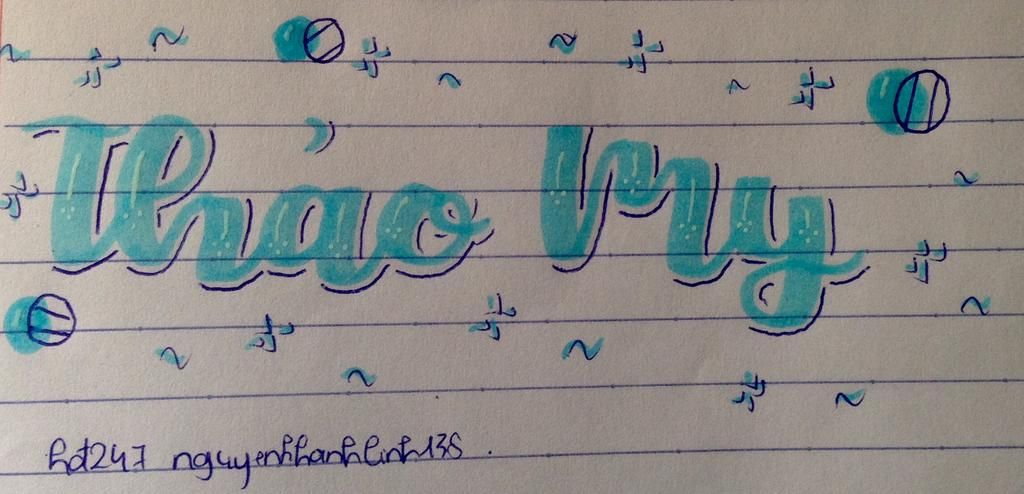 Thảo My
hdt247 nguyenkhanhlinh138 .